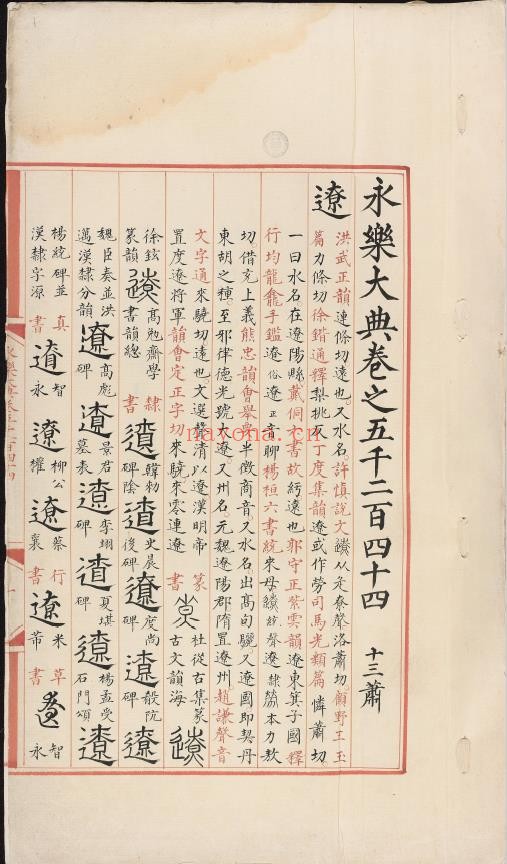 永樂大典卷之五千二百四十四 十三蕭
遼 洪武正韻連條切遠也又水名許慎說文從辵尞聲洛蕭切顧野王玉
篇力條切徐鍇通釋梨桃反丁度集韻遼或作勞司馬光類篇憐蕭切
一曰水名在遼陽縣戴侗六書故紆遠也郭守正紫雲韻遼東箕子國釋
行均龍龕手鑑遼俗遼正音聊楊桓六書統來母聲遼隸本力敖
切借充上義熊忠韻會舉要半徵商音又水名出高句驪又遼國即契丹
東胡之種至邪律德光號大遼又州名元魏遼陽郡隋置遼州趙謙聲音
文字通來驍切遠也文選聲清以遼漢明帝
置度遼將軍韻會定正字切來驍來雲連遼
篆書 遼 杜從古集篆古文韻海 遼
徐鉉篆韻 遼 高勉齋學書韻總 隸書 遼 韓勑碑陰 遼 史晨後碑 遼 度尚碑 遼 殷阮碑 遼
魏臣奏並洪邁漢隸分韻 遼 高彪碑 遼 景君墓表 遼 李翊碑 遼 夏堪碑 遼 楊孟受石門頌 遼
楊統碑並漢隸字源 真書 遼 智永 遼 柳公權 遼 蔡襄 行書 遼 米芾 草書 遼 智永
nayona.cn